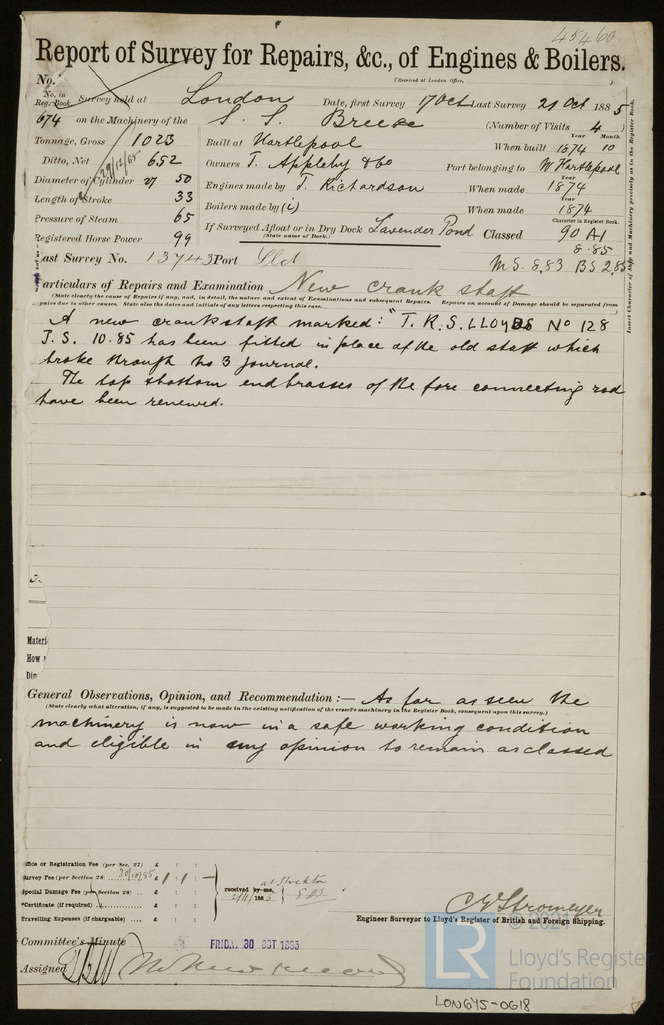 45460
Report of Survey for Repairs, &c., of Engines & Boilers.
(Received at London Office,
No.
No. in Reg. Book Survey held at London Date, first Survey 17 Oct Last Survey 21 Oct 1885
674 on the Machinery of the S. S. Breeze (Number of Visits 4)
Tonnage, Gross 1023 Built at Hartlepool When built Year 1874 Month 10
Ditto, Net 652 Owners T. Appleby & Co Port belonging to W Hartlepool
Diameter of Cylinder 27 50 Engines made by T. Richardson When made Year 1874
Length of Stroke 33
Pressure of Steam 65 Boilers made by (i) When made Year 1874
Registered Horse Power 99 If Surveyed Afloat or in Dry Dock Lavender Pond Classed Character in Register Book. 90 A1
(State name of Dock.)
8.85
Last Survey No. 13743 Port Sld M.S. 8.83 BS 2,85
Insert Character of Ship and Machinery precisely as in the Register Book.
Particulars of Repairs and Examination New crank shaft
(State clearly the cause of Repairs if any, and, in detail, the nature and extent of Examinations and subsequent Repairs. Repairs on account of Damage should be separated from
repairs due to other causes. State also the dates and initials of any letters respecting this case.
A new crankshaft marked: "T. R. S. LLOYDS No 128
J. S. 10.85 has been fitted in place of the old shaft which
broke through No 3 journal.
The top & bottom end brasses of the fore connecting rod
have been renewed.
General Observations, Opinion, and Recommendation :— As far as seen the
(State clearly what alteration, if any, is suggested to be made in the existing notification of the vessel's machinery in the Register Book, consequent upon this survey.)
machinery is now in a safe working condition
and eligible in my opinion to remain as classed
Office or Registration Fee (per Sec. 27) £ : :
Survey Fee (per Section 28) 30/10/85 £ 1 : 1 : –
Special Damage Fee (per Section 28) £ : :
*Certificate (if required) £ : :
Travelling Expenses (if chargeable) £ : :
received by me, at Stockton
188
C E Stromeyer
Engineer Surveyor to Lloyd's Register of British and Foreign Shipping.
Committee's Minute FRIDAY. 30 OCT 1885
Assigned
© 2021
LR
Lloyd's Register
Foundation
LON645-0618